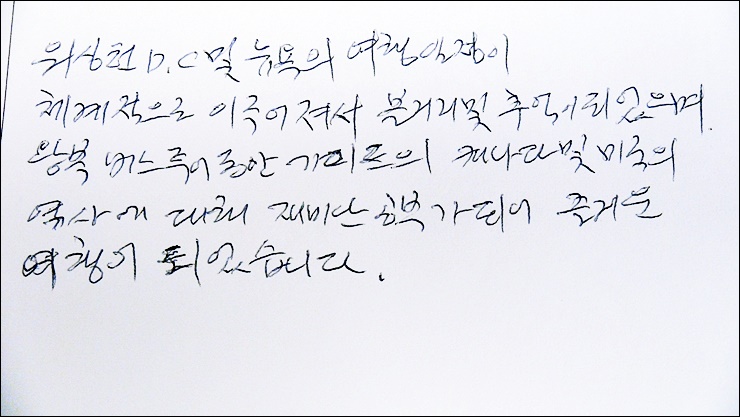 워싱턴 D.C 및 뉴욕의 여행일정이
체계적으로 이루어져서 볼거리및 추억이되었으며.
왕복 버스투어동안 가이드의 캐나다및 미국의
역사에 대해 재미난 공부가되어 즐거운
여행이 되었습니다.